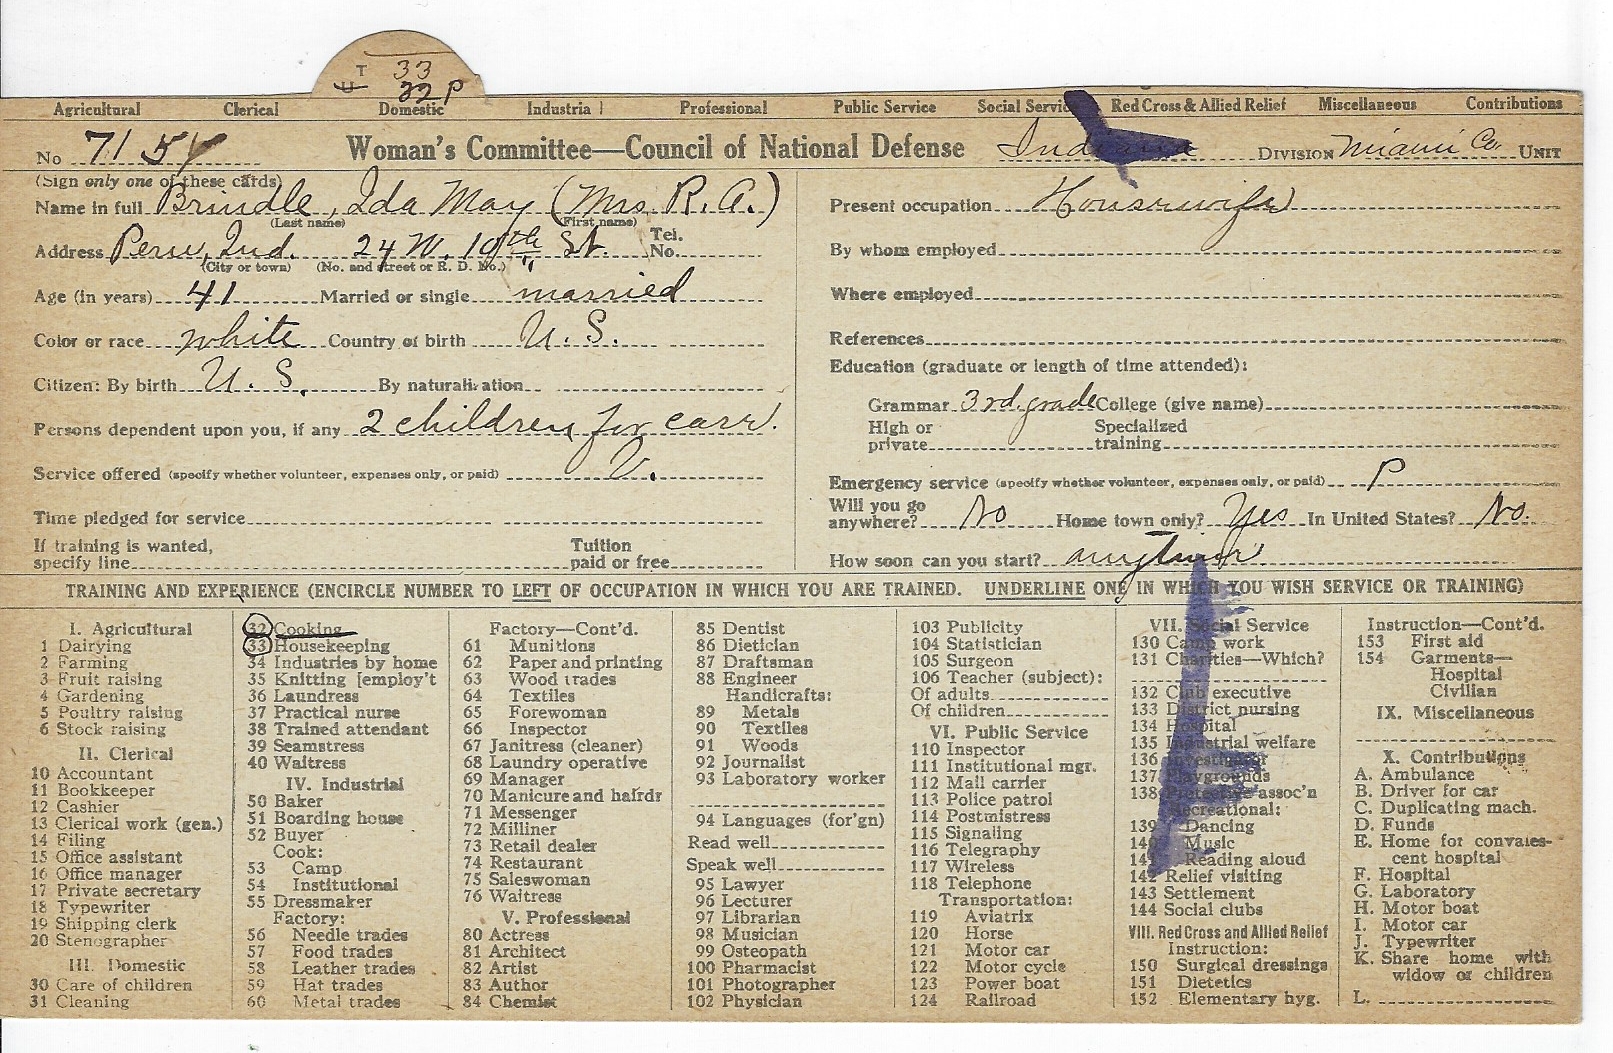 T 33
32 P
Agricultural Clerical Domestic Industrial Professional Public Service Social Service Red Cross & Allied Relief Miscellaneous Contributions
No 7154 Woman's Committee—Council of National Defense Indiana DIVISION Miami Co. UNIT
(Sign only one of these cards)
Name in full Brindle, Ida May (Mrs. R. A.)
(Last name) (First name)
Address Peru, Ind. 24 W. 10th St. Tel. No.
(City or town) (No. and street or R. D. No.)
Age (in years) 41 Married or single married
Color or race white Country of birth U. S.
Citizen: By birth U. S. By naturalization
Persons dependent upon you, if any 2 children for care.
Service offered (specify whether volunteer, expenses only, or paid) V.
Time pledged for service
If training is wanted, specify line Tuition paid or free
Present occupation Housewife
By whom employed
Where employed
References
Education (graduate or length of time attended):
Grammar 3rd. grade College (give name)
High or private Specialized training
Emergency service (specify whether volunteer, expenses only, or paid) P
Will you go anywhere? No Home town only? Yes In United States? No.
How soon can you start? anytime
TRAINING AND EXPERIENCE (ENCIRCLE NUMBER TO LEFT OF OCCUPATION IN WHICH YOU ARE TRAINED. UNDERLINE ONE IN WHICH YOU WISH SERVICE OR TRAINING)
I. Agricultural
1 Dairying
2 Farming
3 Fruit raising
4 Gardening
5 Poultry raising
6 Stock raising
II. Clerical
10 Accountant
11 Bookkeeper
12 Cashier
13 Clerical work (gen.)
14 Filing
15 Office assistant
16 Office manager
17 Private secretary
18 Typewriter
19 Shipping clerk
20 Stenographer
III. Domestic
30 Care of children
31 Cleaning
32 Cooking
33 Housekeeping
34 Industries by home
35 Knitting [employ't
36 Laundress
37 Practical nurse
38 Trained attendant
39 Seamstress
40 Waitress
IV. Industrial
50 Baker
51 Boarding house
52 Buyer
Cook:
53 Camp
54 Institutional
55 Dressmaker
Factory:
56 Needle trades
57 Food trades
58 Leather trades
59 Hat trades
60 Metal trades
Factory—Cont'd.
61 Munitions
62 Paper and printing
63 Wood trades
64 Textiles
65 Forewoman
66 Inspector
67 Janitress (cleaner)
68 Laundry operative
69 Manager
70 Manicure and hairdr
71 Messenger
72 Milliner
73 Retail dealer
74 Restaurant
75 Saleswoman
76 Waitress
V. Professional
80 Actress
81 Architect
82 Artist
83 Author
84 Chemist
85 Dentist
86 Dietician
87 Draftsman
88 Engineer
Handicrafts:
89 Metals
90 Textiles
91 Woods
92 Journalist
93 Laboratory worker
94 Languages (for'gn)
Read well
Speak well
95 Lawyer
96 Lecturer
97 Librarian
98 Musician
99 Osteopath
100 Pharmacist
101 Photographer
102 Physician
103 Publicity
104 Statistician
105 Surgeon
106 Teacher (subject):
Of adults
Of children
VI. Public Service
110 Inspector
111 Institutional mgr.
112 Mail carrier
113 Police patrol
114 Postmistress
115 Signaling
116 Telegraphy
117 Wireless
118 Telephone
Transportation:
119 Aviatrix
120 Horse
121 Motor car
122 Motor cycle
123 Power boat
124 Railroad
VII. Social Service
130 Camp work
131 Charities—Which?
132 Club executive
133 District nursing
134 Hospital
135 Industrial welfare
136 Investigator
137 Playgrounds
138 Protective assoc'n
Recreational:
139 Dancing
140 Music
141 Reading aloud
142 Relief visiting
143 Settlement
144 Social clubs
VIII. Red Cross and Allied Relief
Instruction:
150 Surgical dressings
151 Dietetics
152 Elementary hyg.
Instruction—Cont'd.
153 First aid
154 Garments—
Hospital
Civilian
IX. Miscellaneous
X. Contributions
A. Ambulance
B. Driver for car
C. Duplicating mach.
D. Funds
E. Home for convales-
cent hospital
F. Hospital
G. Laboratory
H. Motor boat
I. Motor car
J. Typewriter
K. Share home with
widow or children
L.